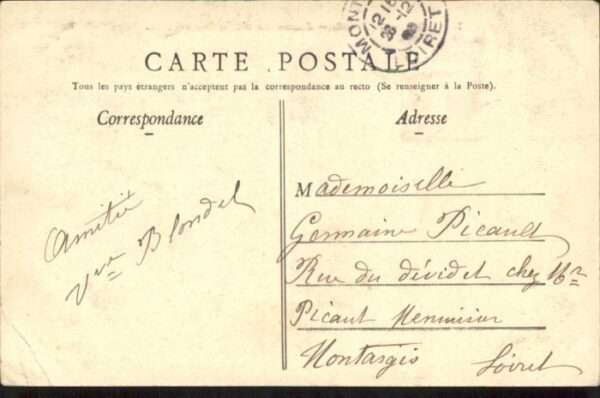 MONT
12 15
28 -12
LOIRET
CARTE POSTALE
Tous les pays étrangers n'acceptent pas la correspondance au recto (Se renseigner à la Poste).
Correspondance
Adresse
Amitié
Vve Blondel
Mademoiselle
Germaine Picault
Rue du dévidet chez Mr
Picaut Menuisier
Montargis Loiret